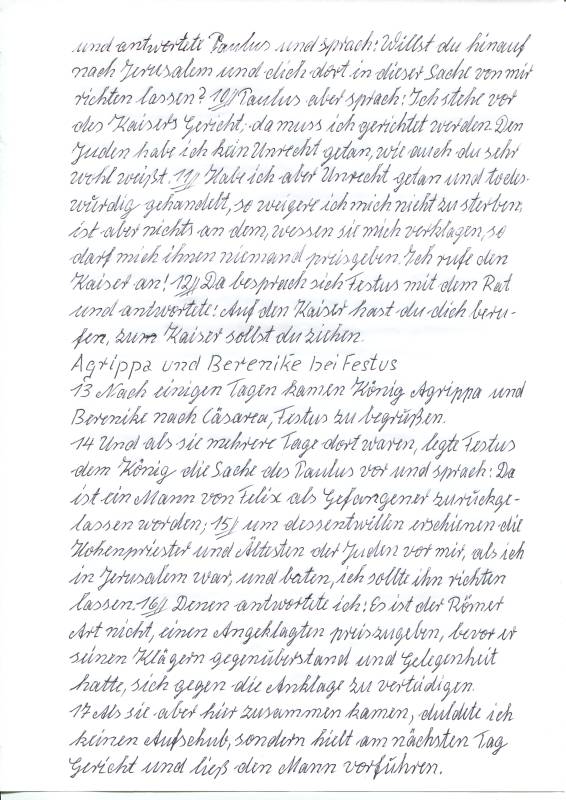 und antwortete Paulus und sprach: Willst du hinauf
nach Jerusalem und dich dort in dieser Sache von mir
richten lassen? 10// Paulus aber sprach: Ich stehe vor
des Kaisers Gericht, da muss ich gerichtet werden. Den
Juden habe ich kein Unrecht getan, wie auch du sehr
wohl weißt. 11// Habe ich aber Unrecht getan und todes-
würdig gehandelt, so weigere ich mich nicht zu sterben;
ist aber nichts an dem, wessen sie mich verklagen, so
darf mich ihnen niemand preisgeben. Ich rufe den
Kaiser an! 12// Da besprach sich Festus mit dem Rat
und antwortete: Auf den Kaiser hast du dich beru-
fen, zum Kaiser sollst du ziehen.
Agrippa und Berenike bei Festus
13 Nach einigen Tagen kamen König Agrippa und
Berenike nach Cäsarea, Festus zu begrüßen.
14 Und als sie mehrere Tage dort waren, legte Festus
dem König die Sache des Paulus vor und sprach: Da
ist ein Mann von Felix als Gefangener zurückge-
lassen worden; 15// um dessentwillen erschienen die
Hohenpriester und Ältesten der Juden vor mir, als ich
in Jerusalem war, und baten, ich sollte ihn richten
lassen. 16// Denen antwortete ich: Es ist der Römer
Art nicht, einen Angeklagten preiszugeben, bevor er
seinen Klägern gegenüberstand und Gelegenheit
hatte, sich gegen die Anklage zu verteidigen.
17 Als sie aber hier zusammen kamen, duldete ich
keinen Aufschub, sondern hielt am nächsten Tag
Gericht und ließ den Mann vorführen.